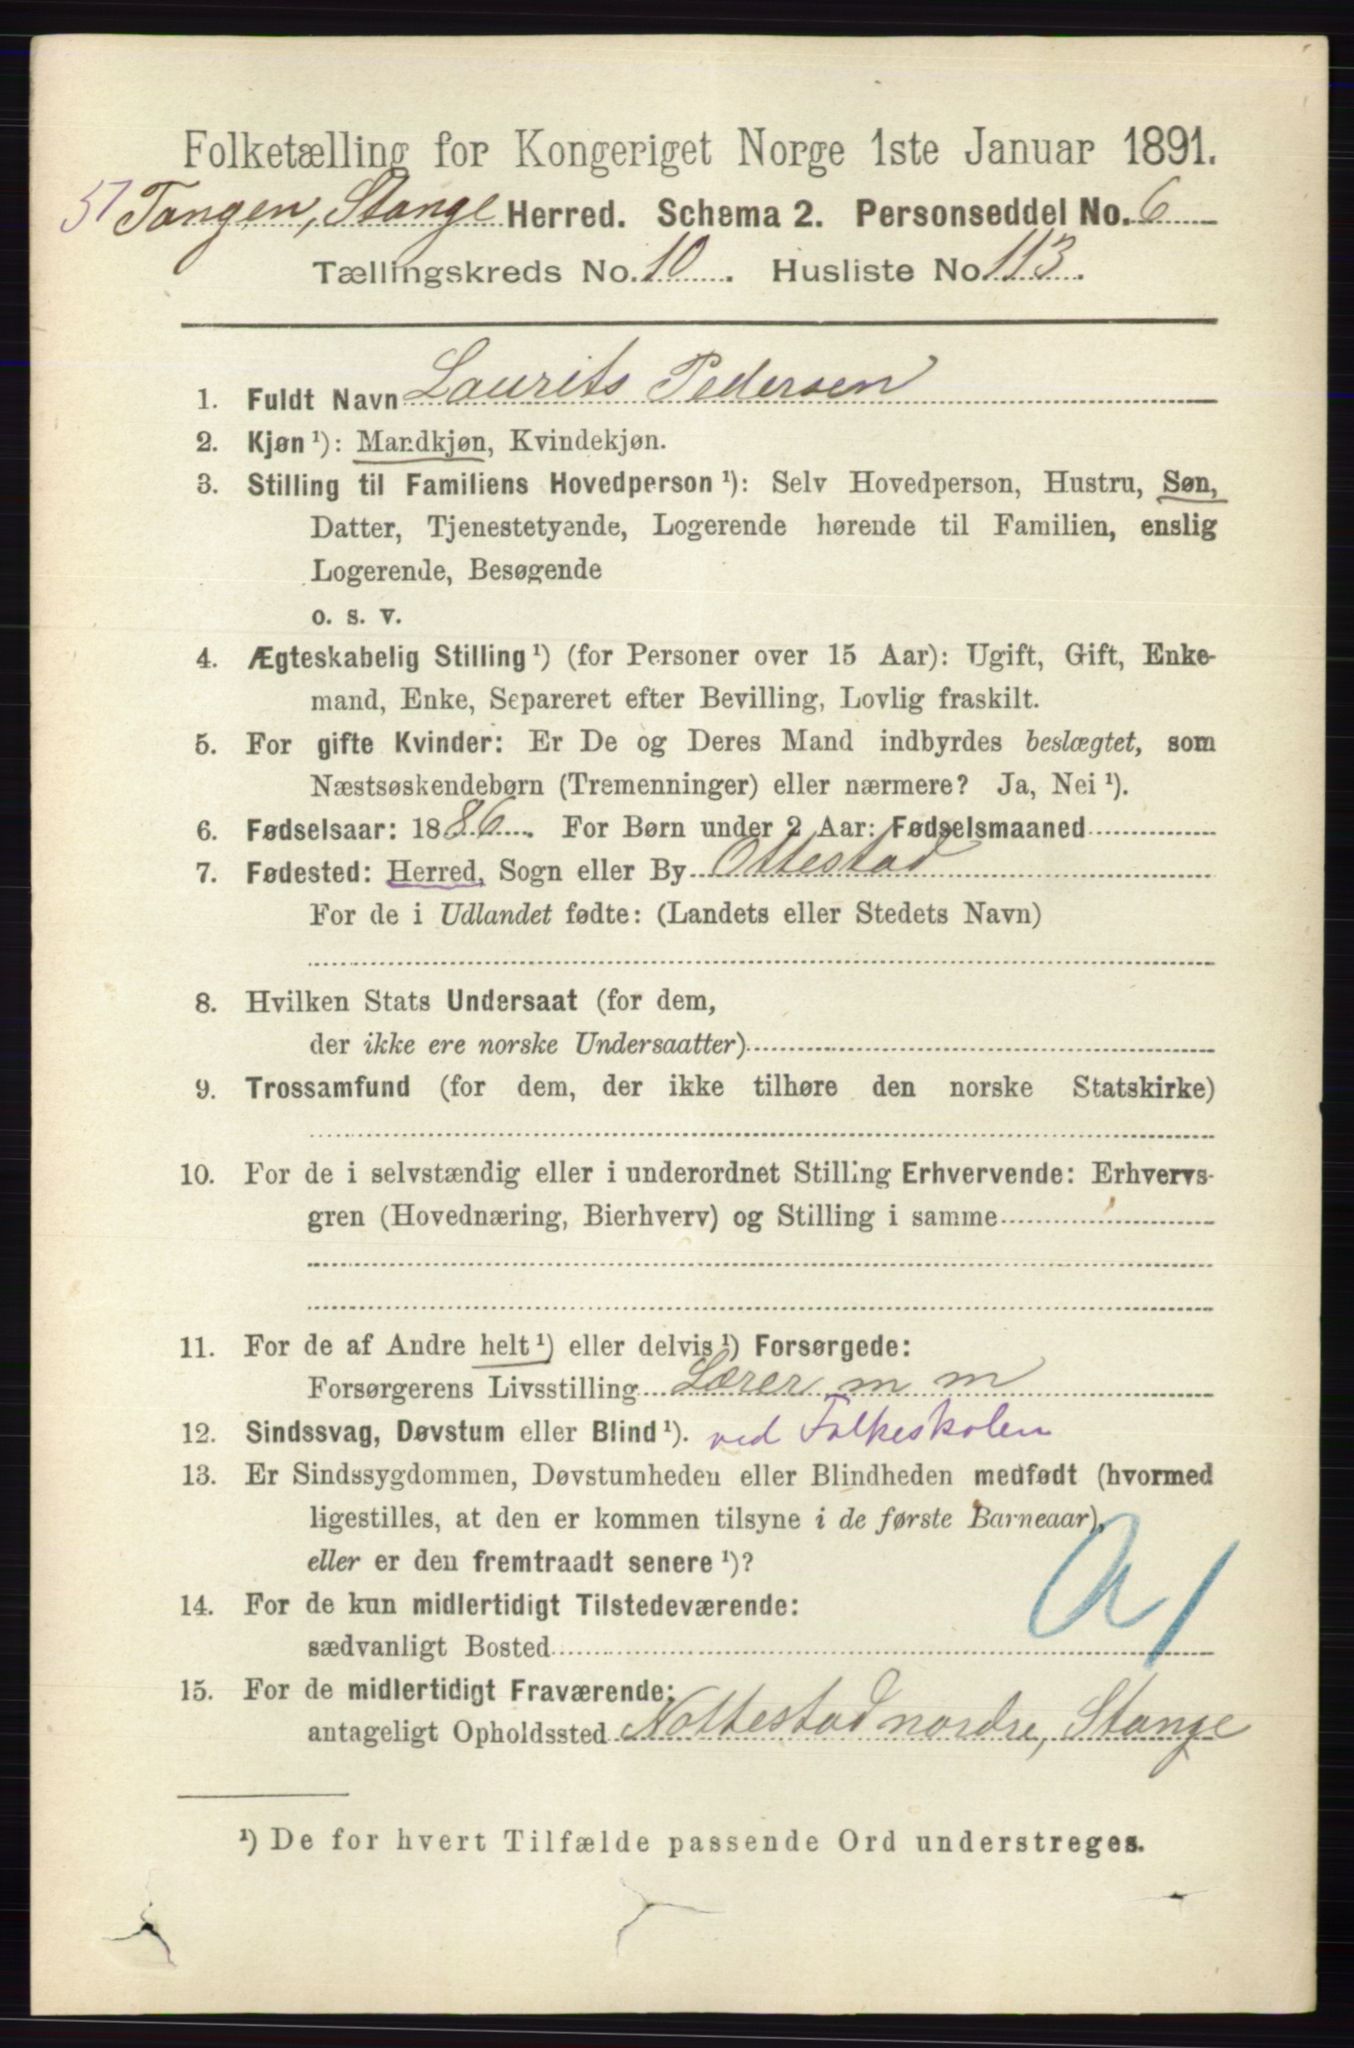 Folketælling for Kongeriget Norge 1ste Januar 1891.
57 Tangen, Stange Herred. Schema 2. Personseddel No. 6
Tællingskreds No. 10. Husliste No 113.
1. Fuldt Navn Laurits Pedersen
2. Kjøn ¹): Mandkjøn, Kvindekjøn.
3. Stilling til Familiens Hovedperson ¹): Selv Hovedperson, Hustru, Søn,
Datter, Tjenestetyende, Logerende hørende til Familien, enslig
Logerende, Besøgende
o. s. v.
4. Ægteskabelig Stilling ¹) (for Personer over 15 Aar): Ugift, Gift, Enke-
mand, Enke, Separeret efter Bevilling, Lovlig fraskilt.
5. For gifte Kvinder: Er De og Deres Mand indbyrdes beslægtet, som
Næstsøskendebørn (Tremenninger) eller nærmere? Ja, Nei ¹).
6. Fødselsaar: 1886. For Børn under 2 Aar: Fødselsmaaned
7. Fødested: Herred, Sogn eller By Ottestad
For de i Udlandet fødte: (Landets eller Stedets Navn)
8. Hvilken Stats Undersaat (for dem,
der ikke ere norske Undersaatter)
9. Trossamfund (for dem, der ikke tilhøre den norske Statskirke)
10. For de i selvstændig eller i underordnet Stilling Erhvervende: Erhvervs-
gren (Hovednæring, Bierhverv) og Stilling i samme
11. For de af Andre helt ¹) eller delvis ¹) Forsørgede:
Forsørgerens Livsstilling Lærer m m
12. Sindssvag, Døvstum eller Blind ¹). ved Folkeskolen
13. Er Sindssygdommen, Døvstumheden eller Blindheden medfødt (hvormed
ligestilles, at den er kommen tilsyne i de første Barneaar),
eller er den fremtraadt senere ¹)?
14. For de kun midlertidigt Tilstedeværende:
sædvanligt Bosted
15. For de midlertidigt Fraværende:
antageligt Opholdssted Nottestad nordre, Stange
¹) De for hvert Tilfælde passende Ord understreges.